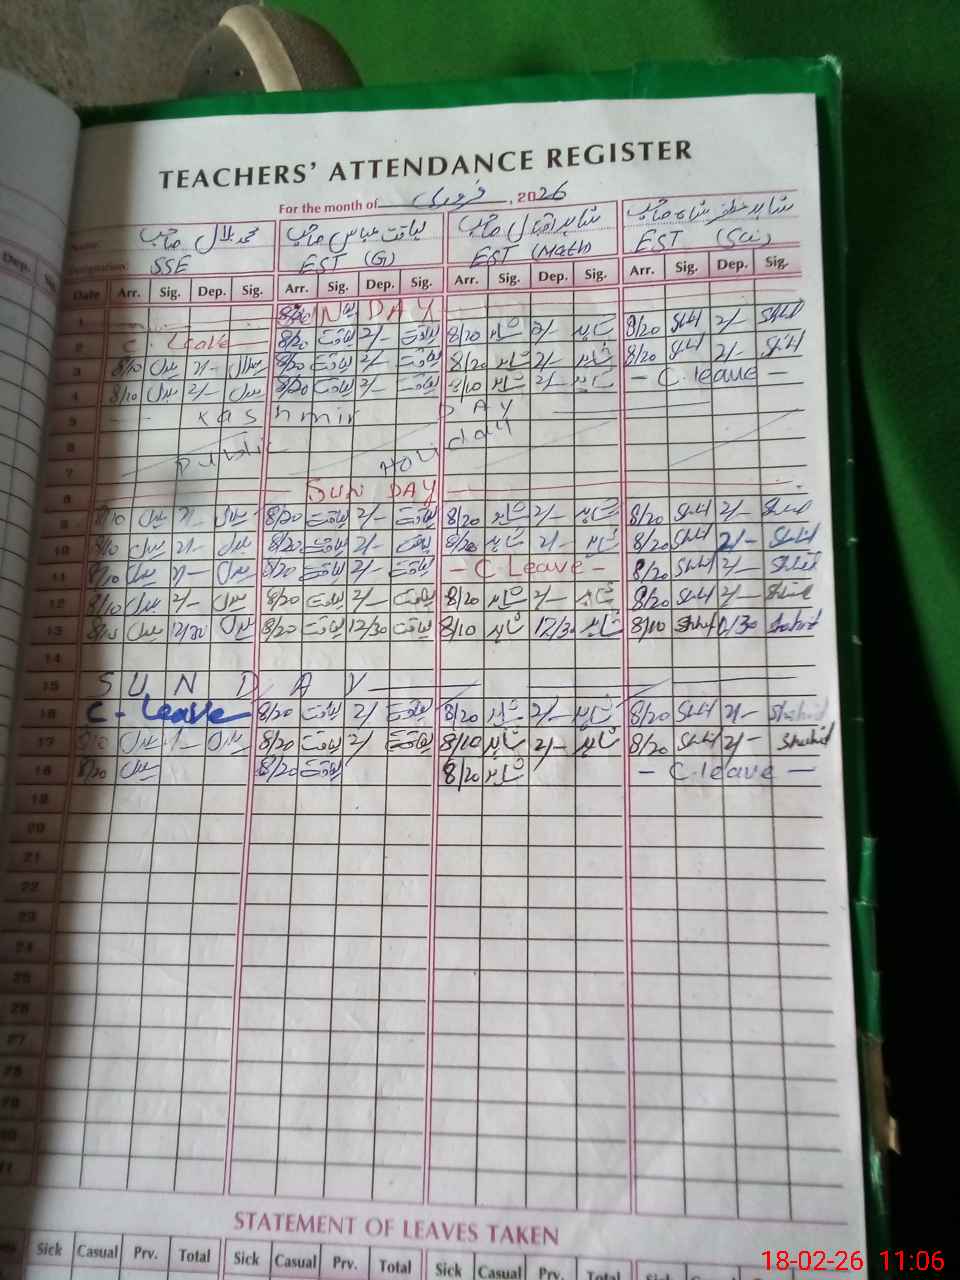 TEACHERS' ATTENDANCE REGISTER
For the month of فروری, 2026
Name محمد بلال صاحب لیاقت عباس صاحب شاہد اقبال صاحب شاہد مظفر شاہ صاحب
Designation SSE EST (G) EST (Math) EST (Sci)
Dep.
Date Arr. Sig. Dep. Sig. Arr. Sig. Dep. Sig. Arr. Sig. Dep. Sig. Arr. Sig. Dep. Sig.
1 DAY
2 C. Leave 8/20 لیاقت 2/- لیاقت 8/20 شاہد 2/- شاہد 8/20 2/-
3 8/10 بلال 2/- بلال 8/20 لیاقت 2/- لیاقت 8/20 شاہد 2/- شاہد 8/20 2/-
4 8/10 بلال 2/- بلال 8/20 لیاقت 2/- لیاقت 8/10 شاہد 2/- شاہد - C. leave -
5 Kashmir DAY
6 Public Holiday
7
8 SUN DAY
9 8/10 بلال 2/- بلال 8/20 لیاقت 2/- لیاقت 8/20 شاہد 2/- شاہد 8/20 2/-
10 8/10 بلال 2/- بلال 8/20 لیاقت 2/- لیاقت 8/20 شاہد 2/- شاہد 8/20 2/-
11 8/10 بلال 2/- بلال 8/20 لیاقت 2/- لیاقت - C. Leave - 8/20 2/-
12 8/10 بلال 2/- بلال 8/20 لیاقت 2/- لیاقت 8/20 شاہد 2/- شاہد 8/20 2/-
13 8/10 بلال 12/30 بلال 8/20 لیاقت 12/30 لیاقت 8/10 شاہد 12/30 شاہد 8/10 12/30 Shahid
14
15 SUNDAY
16 C - Leave 8/20 لیاقت 2/ لیاقت 8/20 شاہد 2/- شاہد 8/20 2/- Shahid
17 8/10 بلال 2/- بلال 8/20 لیاقت 2/ لیاقت 8/10 شاہد 2/- شاہد 8/20 2/- Shahid
18 8/20 بلال 8/20 لیاقت 8/20 شاہد - C. leave -
19
20
21
22
23
24
25
26
27
28
29
30
31
STATEMENT OF LEAVES TAKEN
Sick Casual Prv. Total Sick Casual Prv. Total Sick Casual Prv. Total Sick Casual
18-02-26 11:06